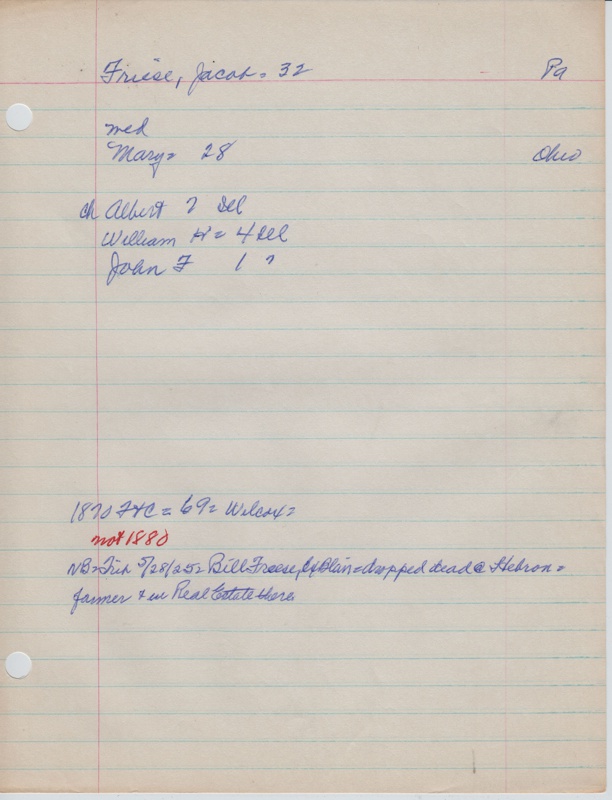 Friese, Jacob = 32 Pa
med
Mary = 28 Ohio
ch Albert 7 Ill
William H = 4 Ill
John F 1 "
1870 F & C = 69 = Wilcox =
not 1880
NB = Trib 5/28/25 = Bill Freese, = dropped dead @ Hebron =
farmer & in Real Estate there